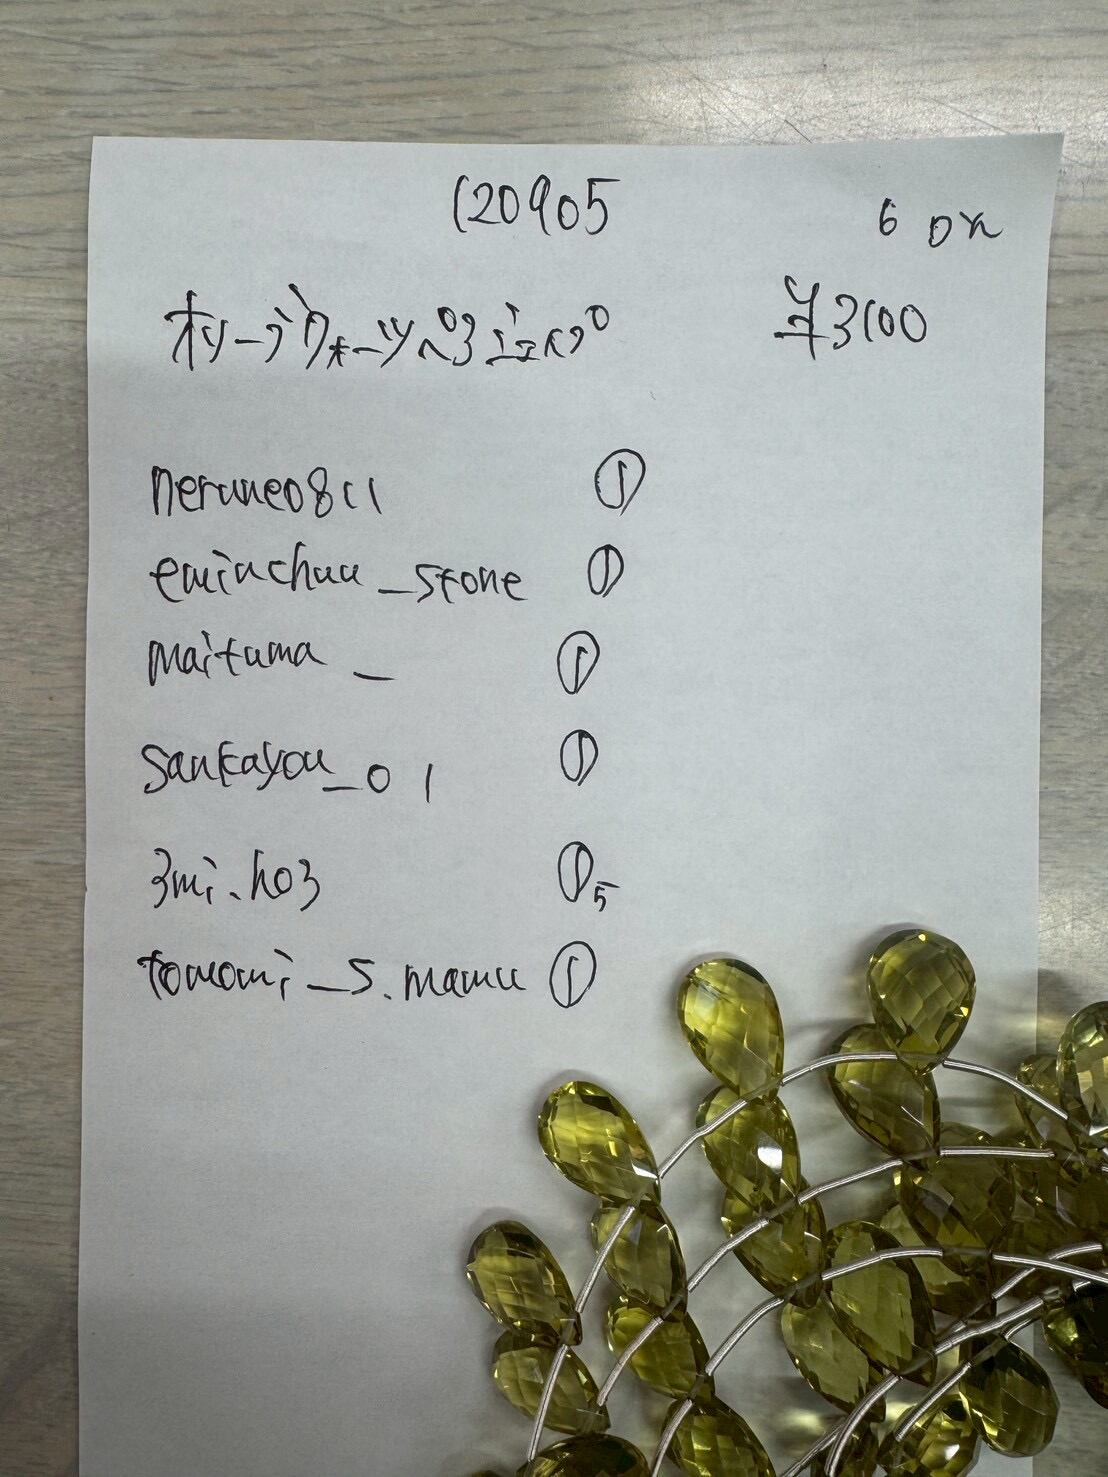 120905
6 on
オリーブクォーツペアシェイプ
¥3100
nerune0811 ①
eminchuu_stone ①
maitama_ ①
sankayou_01 ①
3mi.ho3 ① 5
tomomi_s.mamu ①